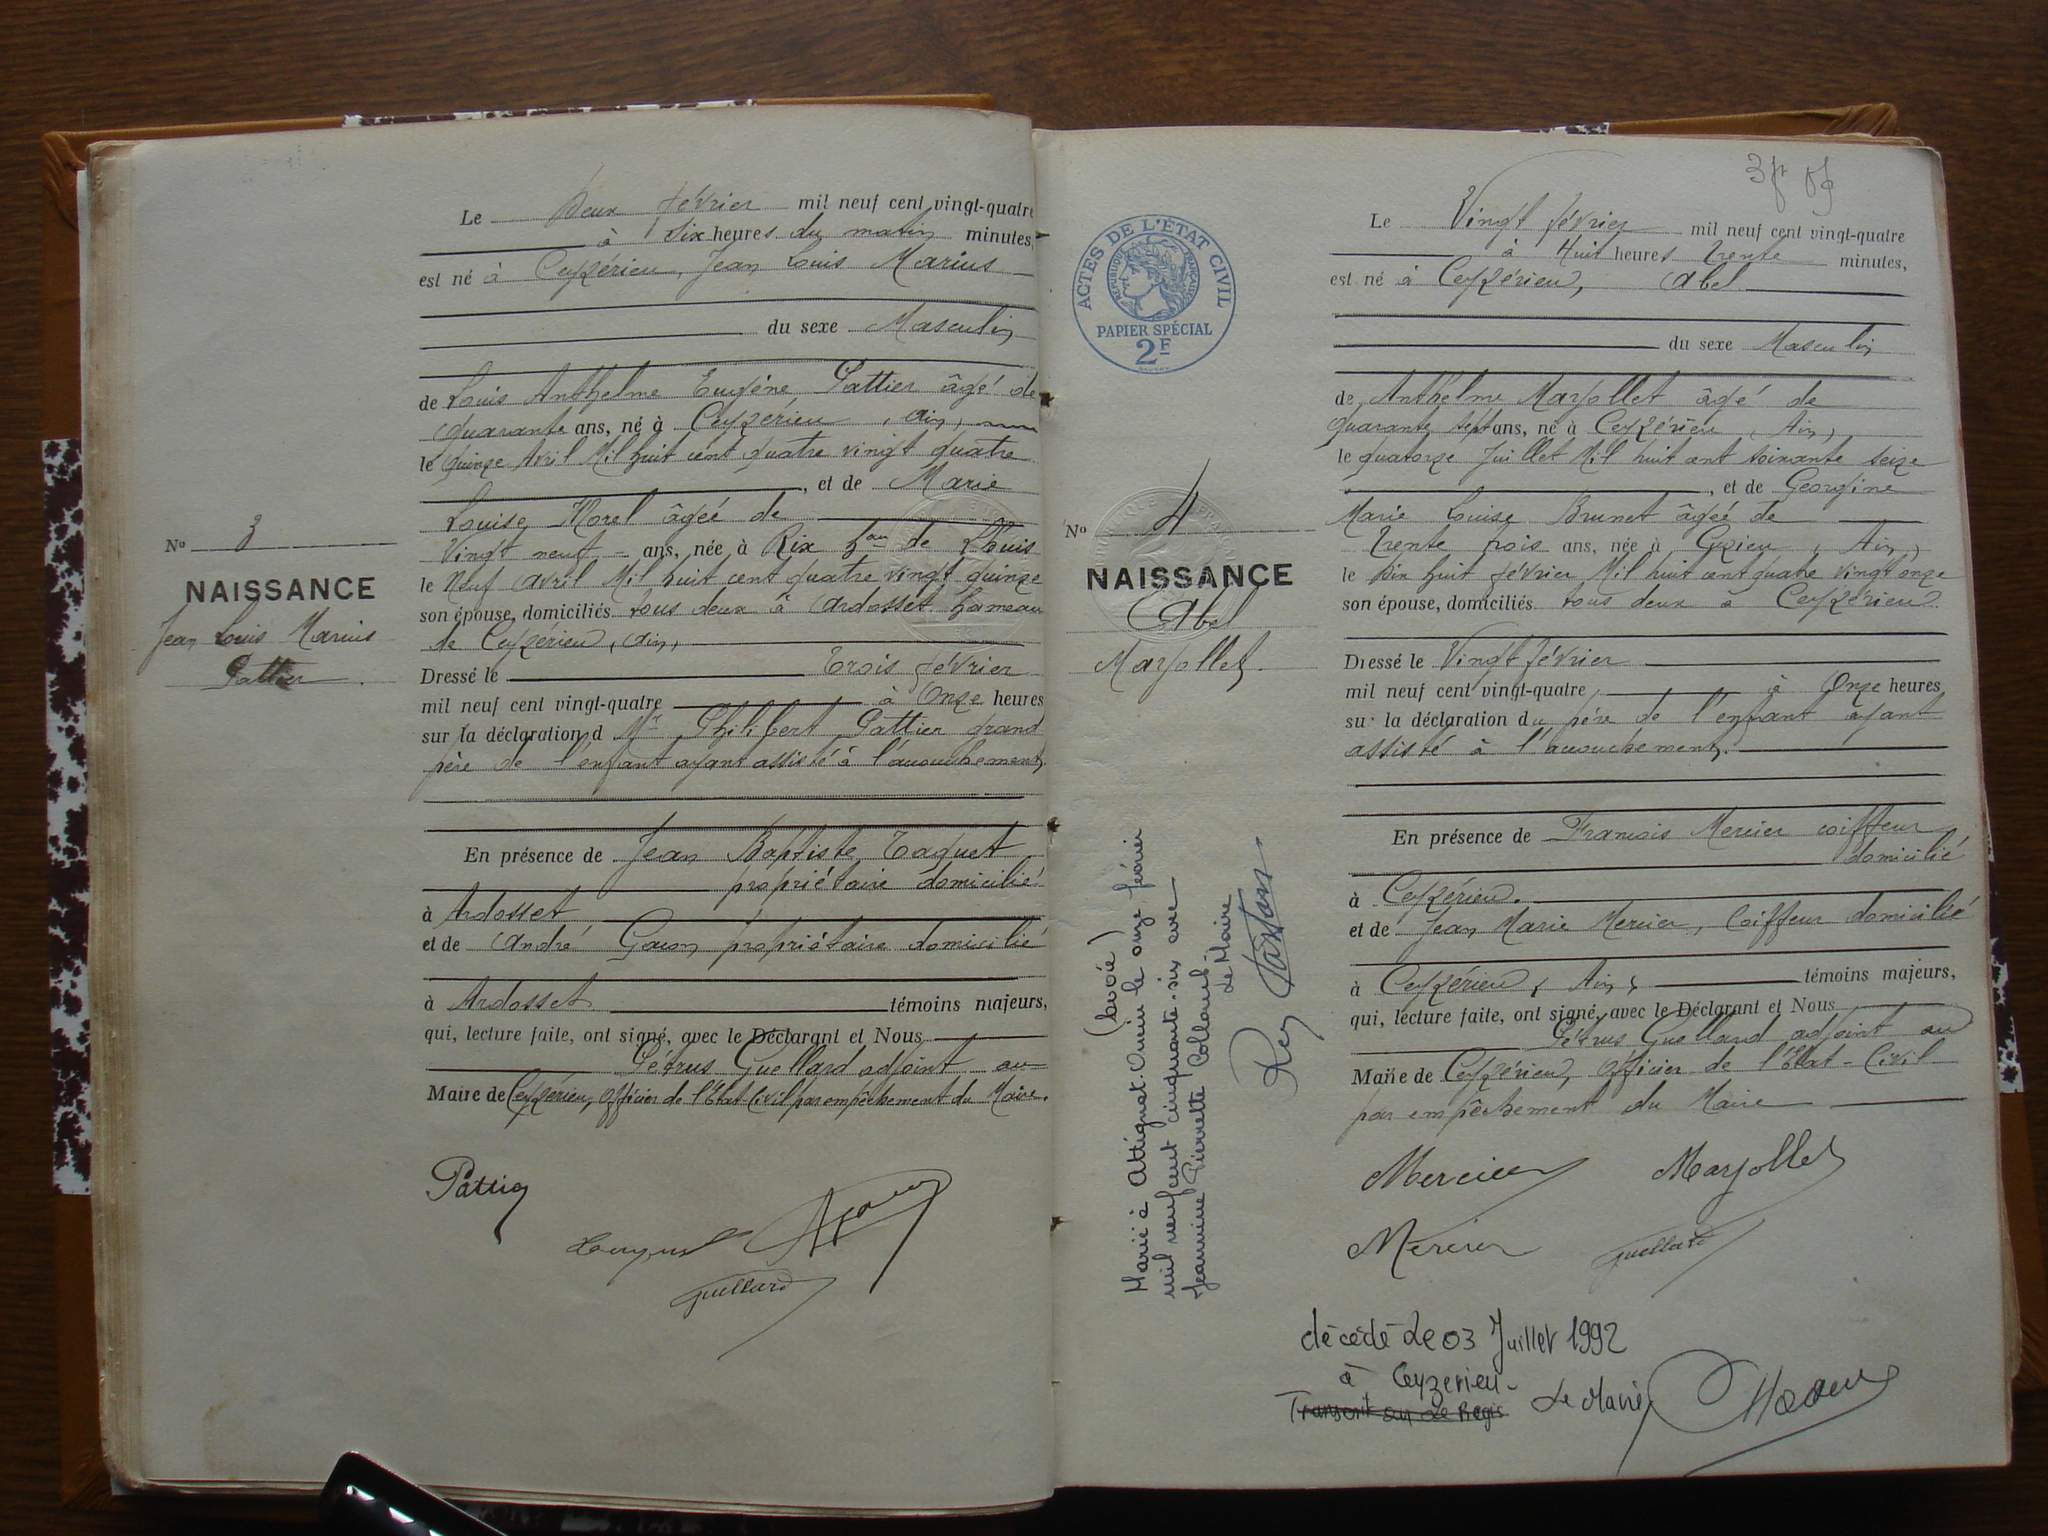 Le Deux février mil neuf cent vingt-quatre
à six heures du matin minutes,
est né à Ceyzérieu, Jean Louis Marius
du sexe Masculin
de Louis Anthelme Eugène Pattier âgé de
quarante ans, né à Ceyzérieu (Ain)
le quinze Avril Mil huit cent quatre vingt quatre
, et de Marie
Louise Morel âgée de
Vingt neuf ans, née à Rix hau de
le Neuf avril Mil huit cent quatre vingt quinze
son épouse, domiciliés tous deux à Ardosset hameau
de Ceyzérieu, (Ain)
Dressé le Trois février
mil neuf cent vingt-quatre à Onze heures
sur la déclaration d Mr Philibert Pattier grand
père de l'enfant ayant assisté à l'accouchement,
En présence de Jean Baptiste Taquet
propriétaire domicilié
à Ardosset
et de André propriétaire domicilié
à Ardosset témoins majeurs,
qui, lecture faite, ont signé, avec le Déclarant et Nous
Pétrus Guellard adjoint au
Maire de Ceyzérieu, officier de l'Etat-Civil par empêchement du Maire.
No 3
NAISSANCE
Jean Louis Marius
Pattier
Pattier
Guellard
3f
ACTES DE L'ÉTAT CIVIL
RÉPUBLIQUE FRANÇAISE
PAPIER SPÉCIAL
2F
No 4
NAISSANCE
Abel
Marjollet
Marié à Attignat-Oncin (Savoie) le onze février
mil neuf cent cinquante-six avec
Jeannine Pierrette Collomb.
Le Maire
Le Vingt février mil neuf cent vingt-quatre
à Huit heures trente minutes,
est né à Ceyzérieu, Abel
du sexe Masculin
de Anthelme Marjollet âgé de
quarante sept ans, né à Ceyzérieu (Ain)
le quatorze Juillet Mil huit cent soixante seize
, et de Georgine
Marie Louise Brunet âgée de
trente trois ans, née à (Ain)
le Dix huit février Mil huit cent quatre vingt onze
son épouse, domiciliés tous deux à Ceyzérieu
Dressé le Vingt février
mil neuf cent vingt-quatre à Onze heures
sur la déclaration du père de l'enfant ayant
assisté à l'accouchement.
En présence de François Mercier coiffeur
domicilié
à Ceyzérieu.
et de Jean Marie Mercier, Coiffeur domicilié
à Ceyzérieu (Ain) témoins majeurs,
qui, lecture faite, ont signé, avec le Déclarant et Nous
Pétrus Guellard adjoint au
Maire de Ceyzérieu, officier de l'Etat-Civil
par empêchement du Maire
Mercier Marjollet
Mercier Guellard
décédé le 03 Juillet 1992
à Ceyzerieu-
Transcrit sur le Regis Le Maire